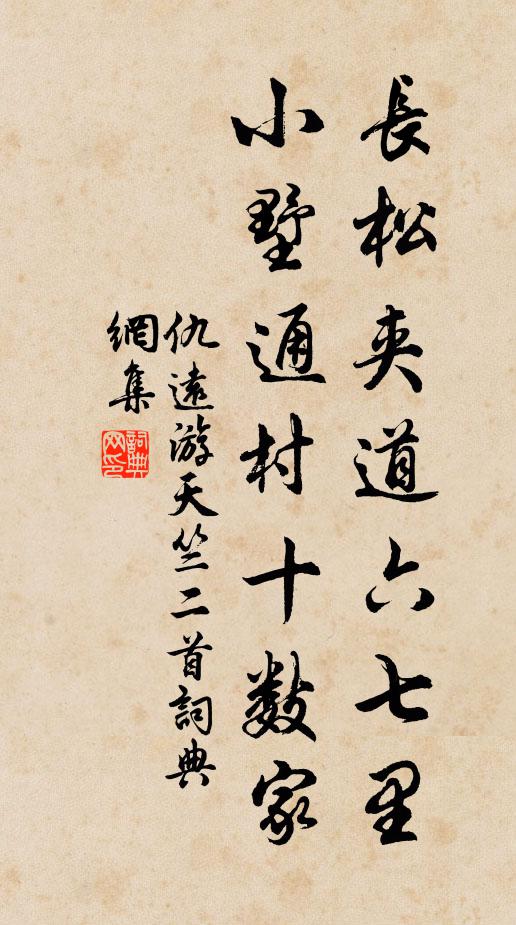 長松夹道六七里
小墅通村十数家
仇遠游天竺二首詞典
網集
詞典
网印